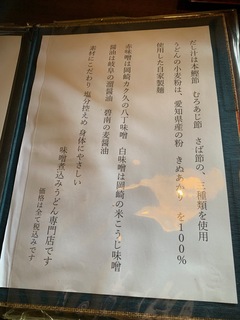 だし汁は本鰹節 むろあじ節 さば節の、三種類を使用
うどんの小麦粉は、愛知県産の粉 きぬあかり を100%
使用した自家製麺
赤味噌は岡崎カク久の八丁味噌 白味噌は岡崎の米こうじ味噌
醤油は岐阜の溜醤油 碧南の麦醤油
素材にこだわり 塩分控えめ 身体にやさしい
味噌煮込みうどん専門店です
価格は全て税込みです